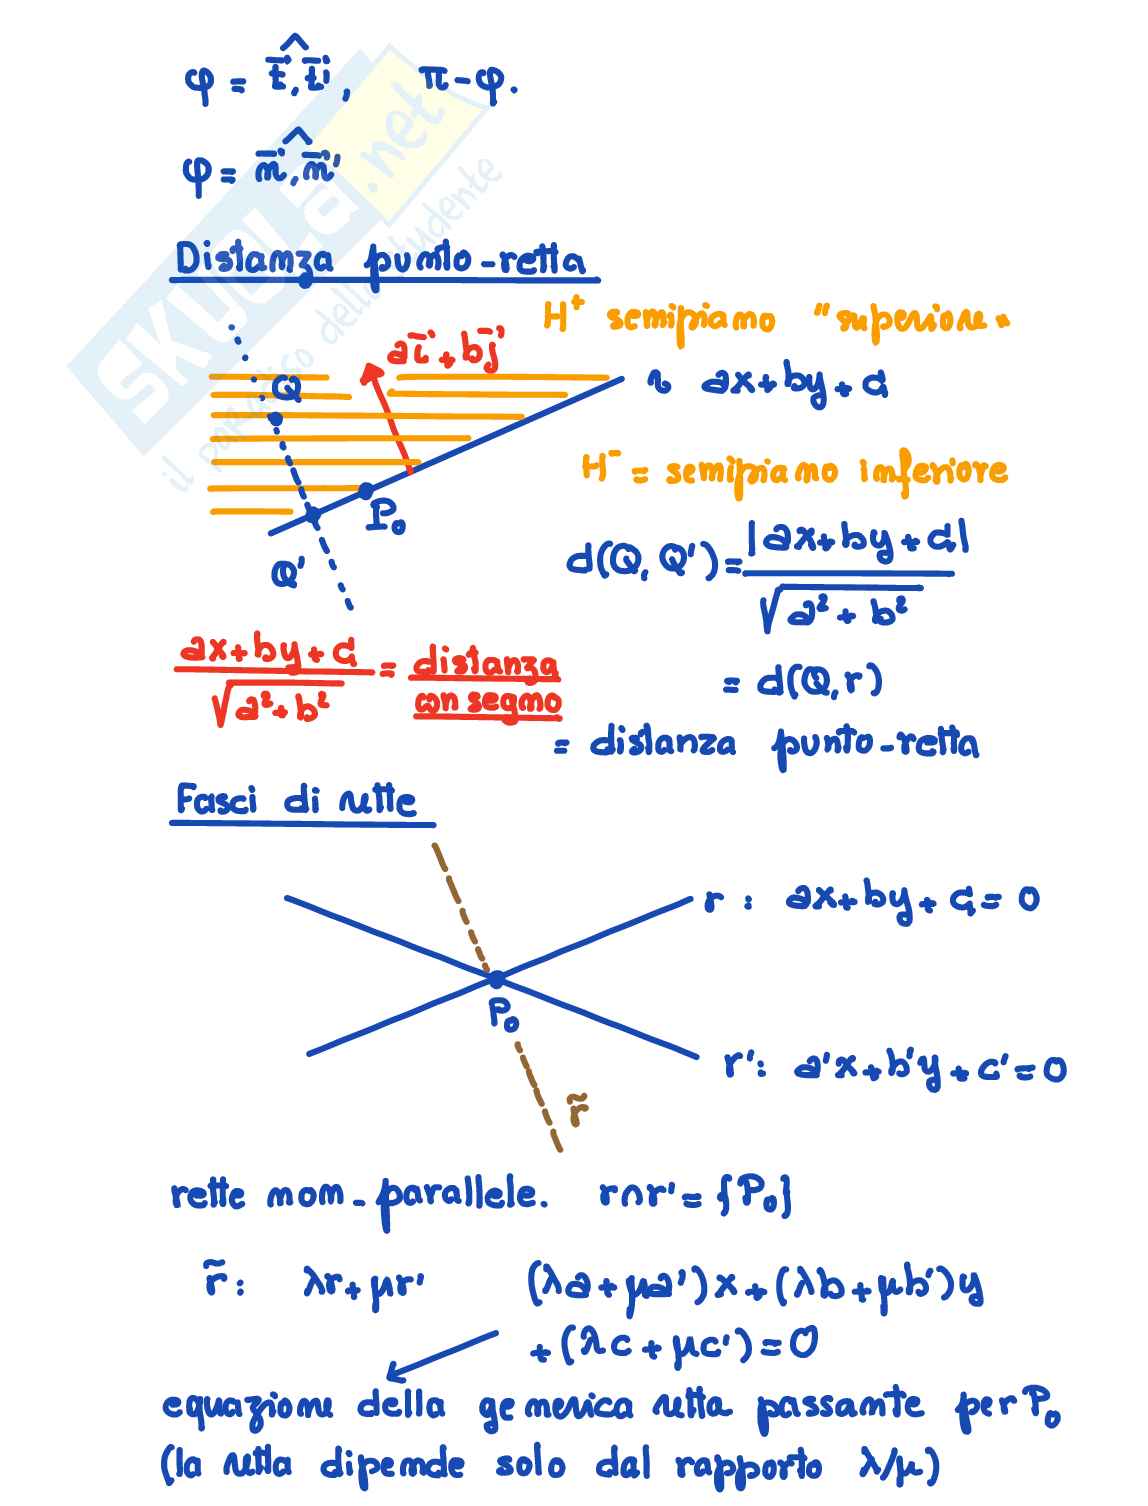 φ = t̄,t̄', π-φ.
φ = n̄,n̄'
SKUOLA.net
il paradiso dello studente
Distanza punto-retta
H⁺ semipiano "superiore"
r ax+by+c
aī+bj̄
Q
H⁻ = semipiano inferiore
P₀
Q'
d(Q,Q') = |ax+by+c| / √a²+b²
ax+by+c / √a²+b² = distanza con segno
= d(Q,r)
= distanza punto-retta
Fasci di rette
r : ax+by+c=0
P₀
r': a'x+b'y+c'=0
r̃
rette non-parallele. r∩r'={P₀}
r̃: λr+μr' (λa+μa')x+(λb+μb')y
+(λc+μc')=0
equazione della generica retta passante per P₀
(la retta dipende solo dal rapporto λ/μ)